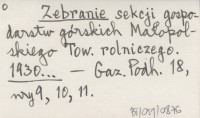 Zebranie sekcji gospo-
darstw górskich Małopol-
skiego Tow. rolniczego.
1930... — Gaz. Podh. 18,
nry 9, 10, 11.